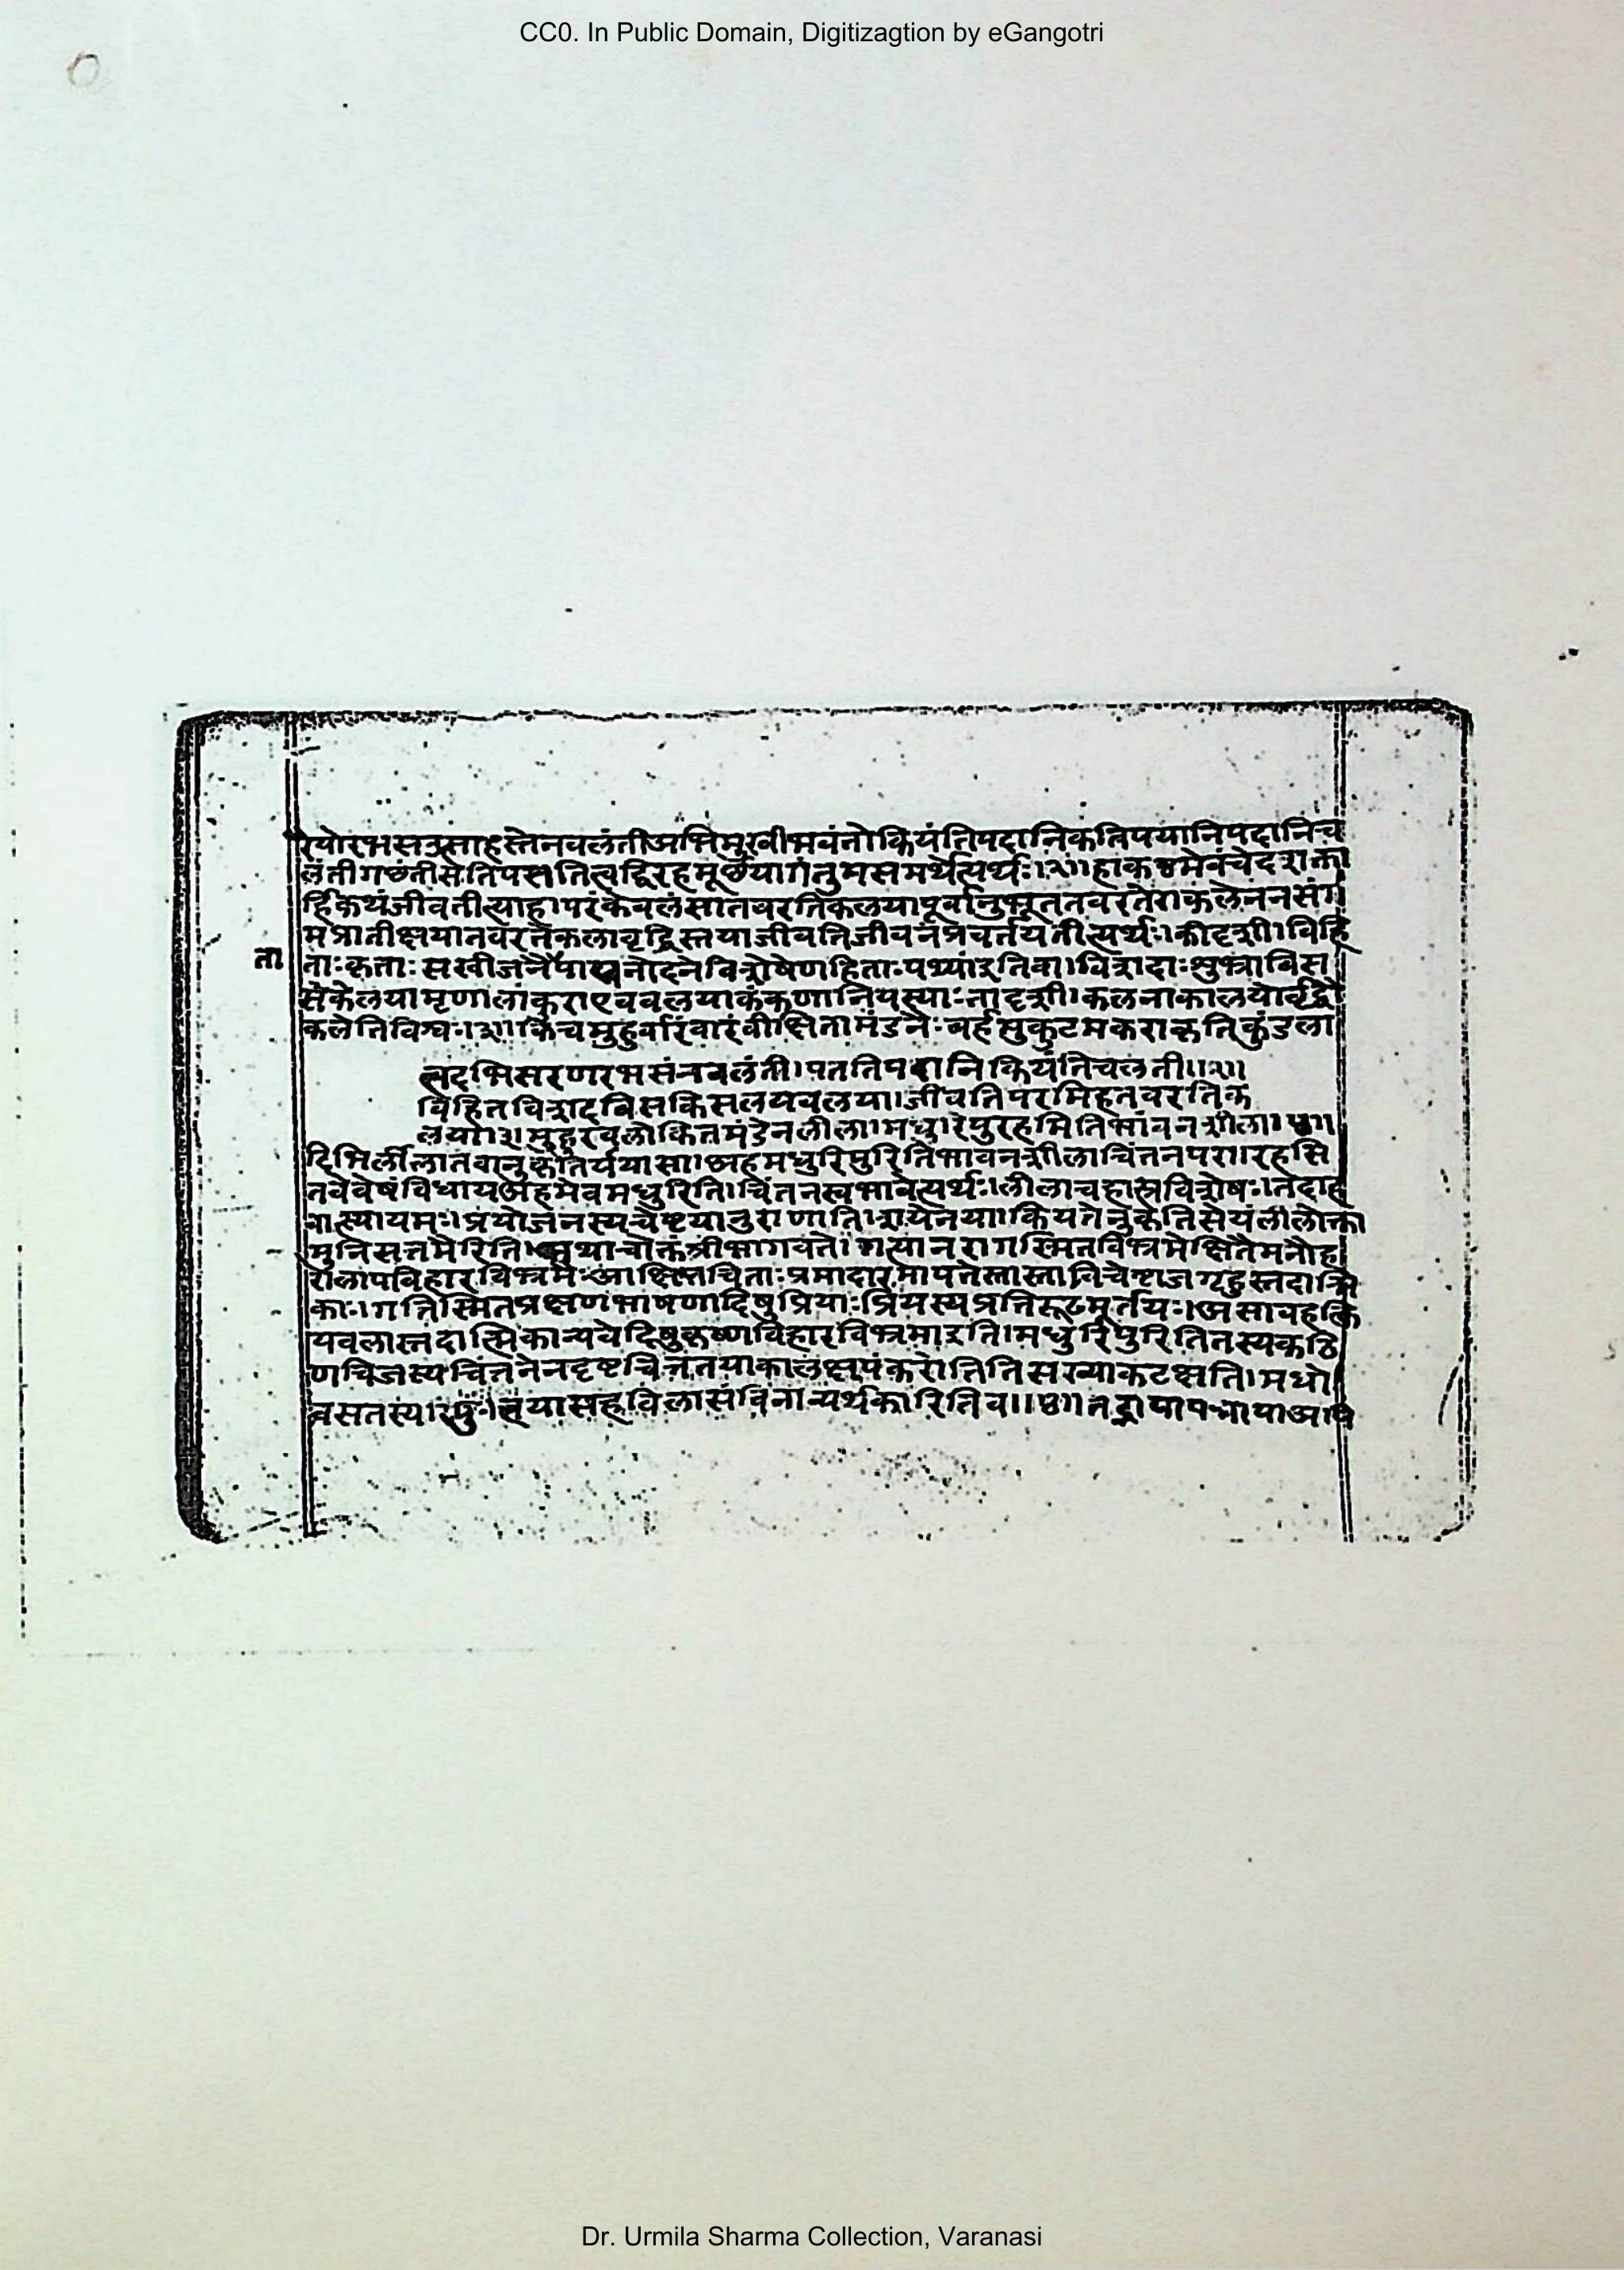 CC0. In Public Domain, Digitizagtion by eGangotri
रेयोरभसउत्साहस्तेनवलंतीअभिमुखीभवंतीकियंतिपदानिकतिपयानिपदानिच
लंतीगछंतीसेतिपततित्वद्विरहमूर्छयागंतुमसमर्थेत्यर्थः।२॥हाकष्टमेवंचेदशक्ता
र्हिकथंजीवतीत्याह।परंकेवलंसातवरतिकलयापूर्वानुभूततवरतेराकलेननसंग
मप्रातीक्षयातवरतेकलावृद्धिस्तयाजीवतिजीवनंप्रवर्तयतीत्यर्थः।कीदृशी।विहि
ता
ताःकृताःसखीजनैः नोदनेविशेषेणहिताःपथ्याइतिवा।विशदाःशुभ्राबिस
सेकेलयामृणालांकुराएववलयाकंकणानियस्याःतादृशी।कलनाकालयोर्वृद्धौ
कलेतिविश्वः।३।किंचमुहुर्वारंवारंवीक्षितामंडनैःबर्हमुकुटमकराकृतिकुंडला
त्वदभिसरणरभसेनवलंती।पततिपदानिकियंतिचलती॥२॥
विहितविशदबिसकिसलयवलया।जीवतिपरमिहतवरतिक
लया।३।मुहुरवलोकितमंडनलीला।मधुरिपुरहमितिभावनशीला।४॥
दिभिर्लीलातवानुकृतिर्ययासा।अहंमधुरिपुरितिभावनशीलाचिंतनपरा।रहसि
तवेवेषंविधायअहमेवमधुरिति।चिंतनस्वभावेत्यर्थः।लीलाचहास्यविशेषः।तदाह
प्रयोजनस्यचेष्टया कियतेनुकृतिसेयंलीलोक्ता
मुनिसत्तमैरिति।तथाचोक्तंश्रीभागवते।गत्यानरागस्मितविभ्रमेक्षितैर्मनोह
रालापविहारविभ्रमैःआक्षिप्तचिताःप्रमादारमापतेस्तास्ताविचेष्टाजगृहुस्तदात्मि
काः।गतिस्मितप्रेक्षणभाषणादिषुप्रियाःप्रियस्यप्रतिरूढमूर्तयः।असावहंत्वि
त्यबलास्तदात्मिकान्यवेदिषुकृष्णविहारविभ्रमाइति।मधुरिपुरितितस्यकठि
णचित्तस्यचिंतनेनदृष्टचित्ततयाकालक्षेपंकरोतीतिसख्याकटाक्षति।मधो
र्वसंतस्यरिपुः।त्वयासहविलासंविनाव्यर्थकारितिव॥४॥
Dr. Urmila Sharma Collection, Varanasi